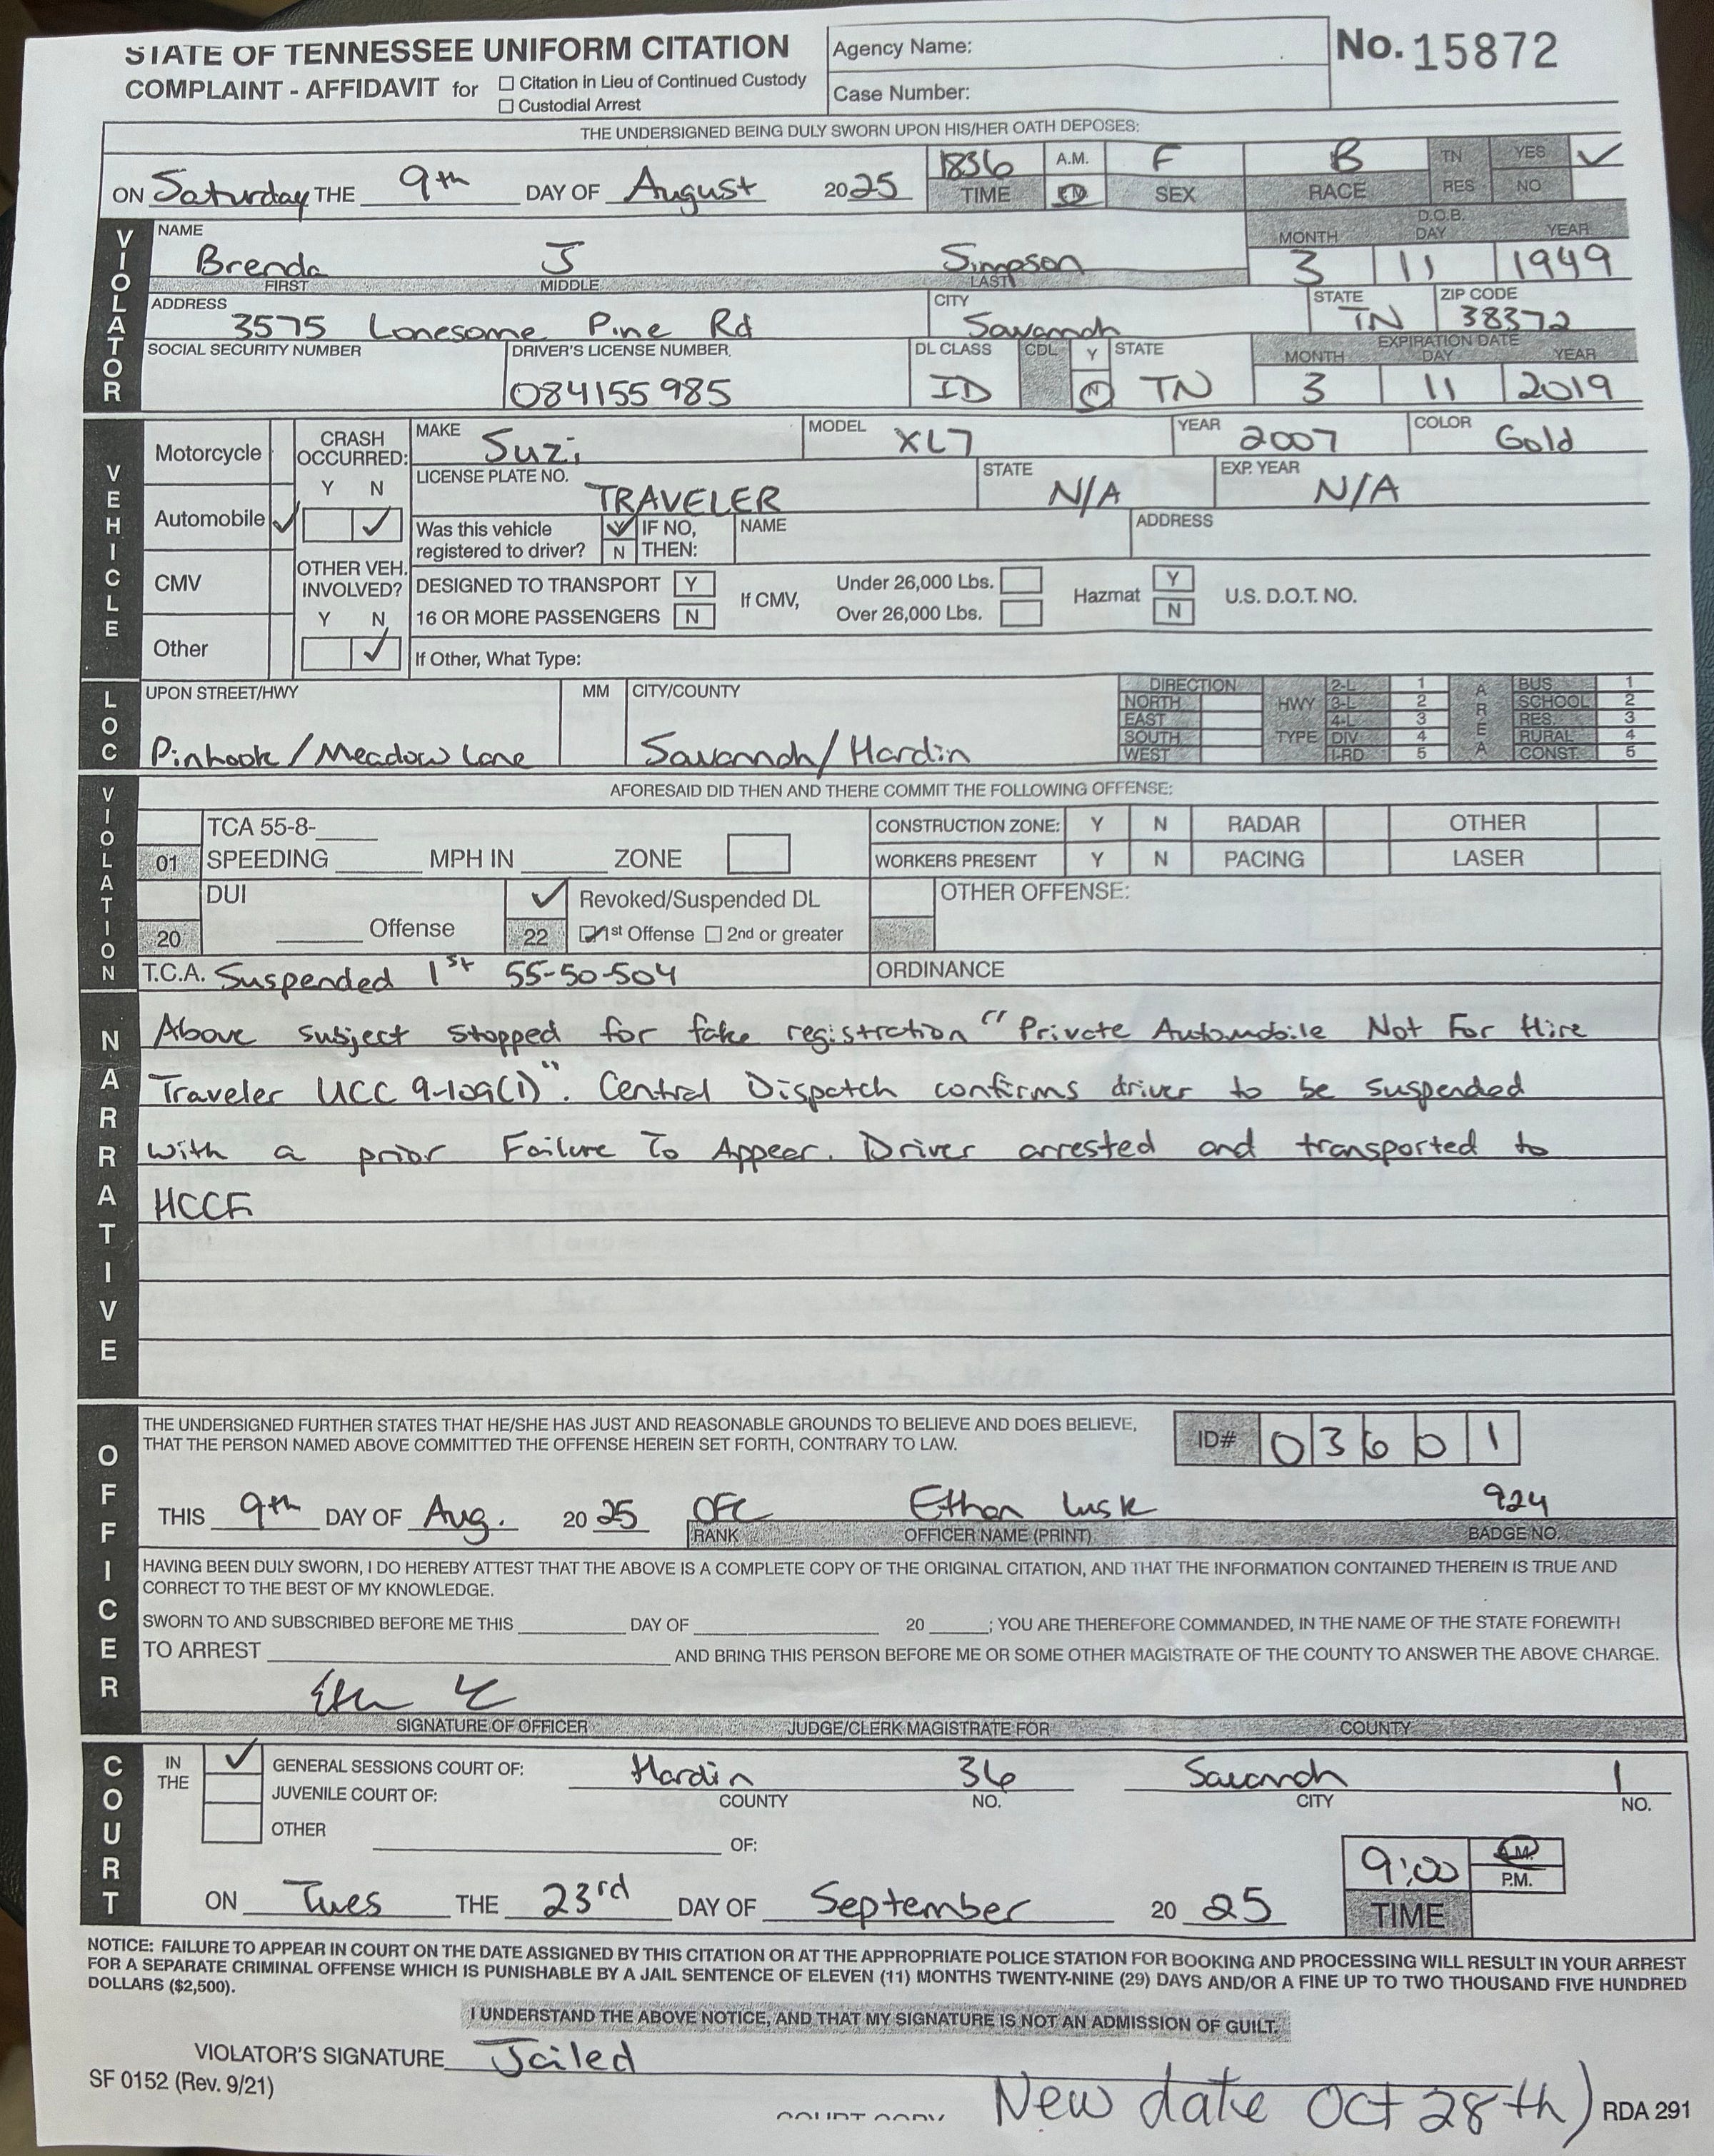 STATE OF TENNESSEE UNIFORM CITATION
COMPLAINT - AFFIDAVIT for
☐ Citation in Lieu of Continued Custody
☐ Custodial Arrest
Agency Name:
Case Number:
No. 15872
THE UNDERSIGNED BEING DULY SWORN UPON HIS/HER OATH DEPOSES:
ON Saturday THE 9th DAY OF August 2025
1836 TIME A.M.
F SEX
B RACE
TN RES YES ✓ NO
VIOLATOR
NAME
Brenda J Simpson
FIRST MIDDLE LAST
D.O.B.
MONTH DAY YEAR
3 11 1949
ADDRESS CITY STATE ZIP CODE
3575 Lonesome Pine Rd Savannah TN 38372
SOCIAL SECURITY NUMBER DRIVER'S LICENSE NUMBER DL CLASS CDL Y N STATE
084155985 ID TN
EXPIRATION DATE
MONTH DAY YEAR
3 11 2019
VEHICLE
Motorcycle
Automobile ✓
CMV
Other
CRASH OCCURRED:
Y N
✓
OTHER VEH. INVOLVED?
Y N
✓
MAKE Suzi MODEL XL7 YEAR 2007 COLOR Gold
LICENSE PLATE NO. TRAVELER STATE N/A EXP. YEAR N/A
Was this vehicle registered to driver? Y N IF NO, THEN: NAME ADDRESS
DESIGNED TO TRANSPORT Y
16 OR MORE PASSENGERS N
If CMV, Under 26,000 Lbs.
Over 26,000 Lbs.
Hazmat Y N
U.S. D.O.T. NO.
If Other, What Type:
LOC
UPON STREET/HWY MM CITY/COUNTY
Pinhook / Meadow Lane Savannah / Hardin
DIRECTION
NORTH
EAST
SOUTH
WEST
HWY TYPE
2-L 1
3-L 2
4-L 3
DIV 4
I-RD 5
AREA
BUS 1
SCHOOL 2
RES. 3
RURAL 4
CONST. 5
VIOLATION
AFORESAID DID THEN AND THERE COMMIT THE FOLLOWING OFFENSE:
TCA 55-8-
01 SPEEDING MPH IN ZONE
CONSTRUCTION ZONE: Y N RADAR OTHER
WORKERS PRESENT Y N PACING LASER
DUI
20 Offense
✓ Revoked/Suspended DL
22 ☑ 1st Offense ☐ 2nd or greater
OTHER OFFENSE:
T.C.A. Suspended 1st 55-50-504
ORDINANCE
NARRATIVE
Above subject stopped for fake registration "Private Automobile Not For Hire
Traveler UCC 9-109(1)". Central Dispatch confirms driver to be suspended
with a prior Failure To Appear. Driver arrested and transported to
HCCF
OFFICER
THE UNDERSIGNED FURTHER STATES THAT HE/SHE HAS JUST AND REASONABLE GROUNDS TO BELIEVE AND DOES BELIEVE,
THAT THE PERSON NAMED ABOVE COMMITTED THE OFFENSE HEREIN SET FORTH, CONTRARY TO LAW.
ID# 03601
THIS 9th DAY OF Aug. 2025 OFC Ethan Lusk 924
RANK OFFICER NAME (PRINT) BADGE NO.
HAVING BEEN DULY SWORN, I DO HEREBY ATTEST THAT THE ABOVE IS A COMPLETE COPY OF THE ORIGINAL CITATION, AND THAT THE INFORMATION CONTAINED THEREIN IS TRUE AND
CORRECT TO THE BEST OF MY KNOWLEDGE.
SWORN TO AND SUBSCRIBED BEFORE ME THIS DAY OF 20 ; YOU ARE THEREFORE COMMANDED, IN THE NAME OF THE STATE FOREWITH
TO ARREST AND BRING THIS PERSON BEFORE ME OR SOME OTHER MAGISTRATE OF THE COUNTY TO ANSWER THE ABOVE CHARGE.
SIGNATURE OF OFFICER JUDGE/CLERK MAGISTRATE FOR COUNTY
COURT
IN THE
✓ GENERAL SESSIONS COURT OF: Hardin 36 Savannah 1
JUVENILE COURT OF: COUNTY NO. CITY NO.
OTHER OF:
ON Tues THE 23rd DAY OF September 2025
9:00 A.M. P.M.
TIME
NOTICE: FAILURE TO APPEAR IN COURT ON THE DATE ASSIGNED BY THIS CITATION OR AT THE APPROPRIATE POLICE STATION FOR BOOKING AND PROCESSING WILL RESULT IN YOUR ARREST
FOR A SEPARATE CRIMINAL OFFENSE WHICH IS PUNISHABLE BY A JAIL SENTENCE OF ELEVEN (11) MONTHS TWENTY-NINE (29) DAYS AND/OR A FINE UP TO TWO THOUSAND FIVE HUNDRED
DOLLARS ($2,500).
I UNDERSTAND THE ABOVE NOTICE, AND THAT MY SIGNATURE IS NOT AN ADMISSION OF GUILT.
VIOLATOR'S SIGNATURE Jailed
SF 0152 (Rev. 9/21)
COURT COPY
New date Oct 28th)
RDA 291